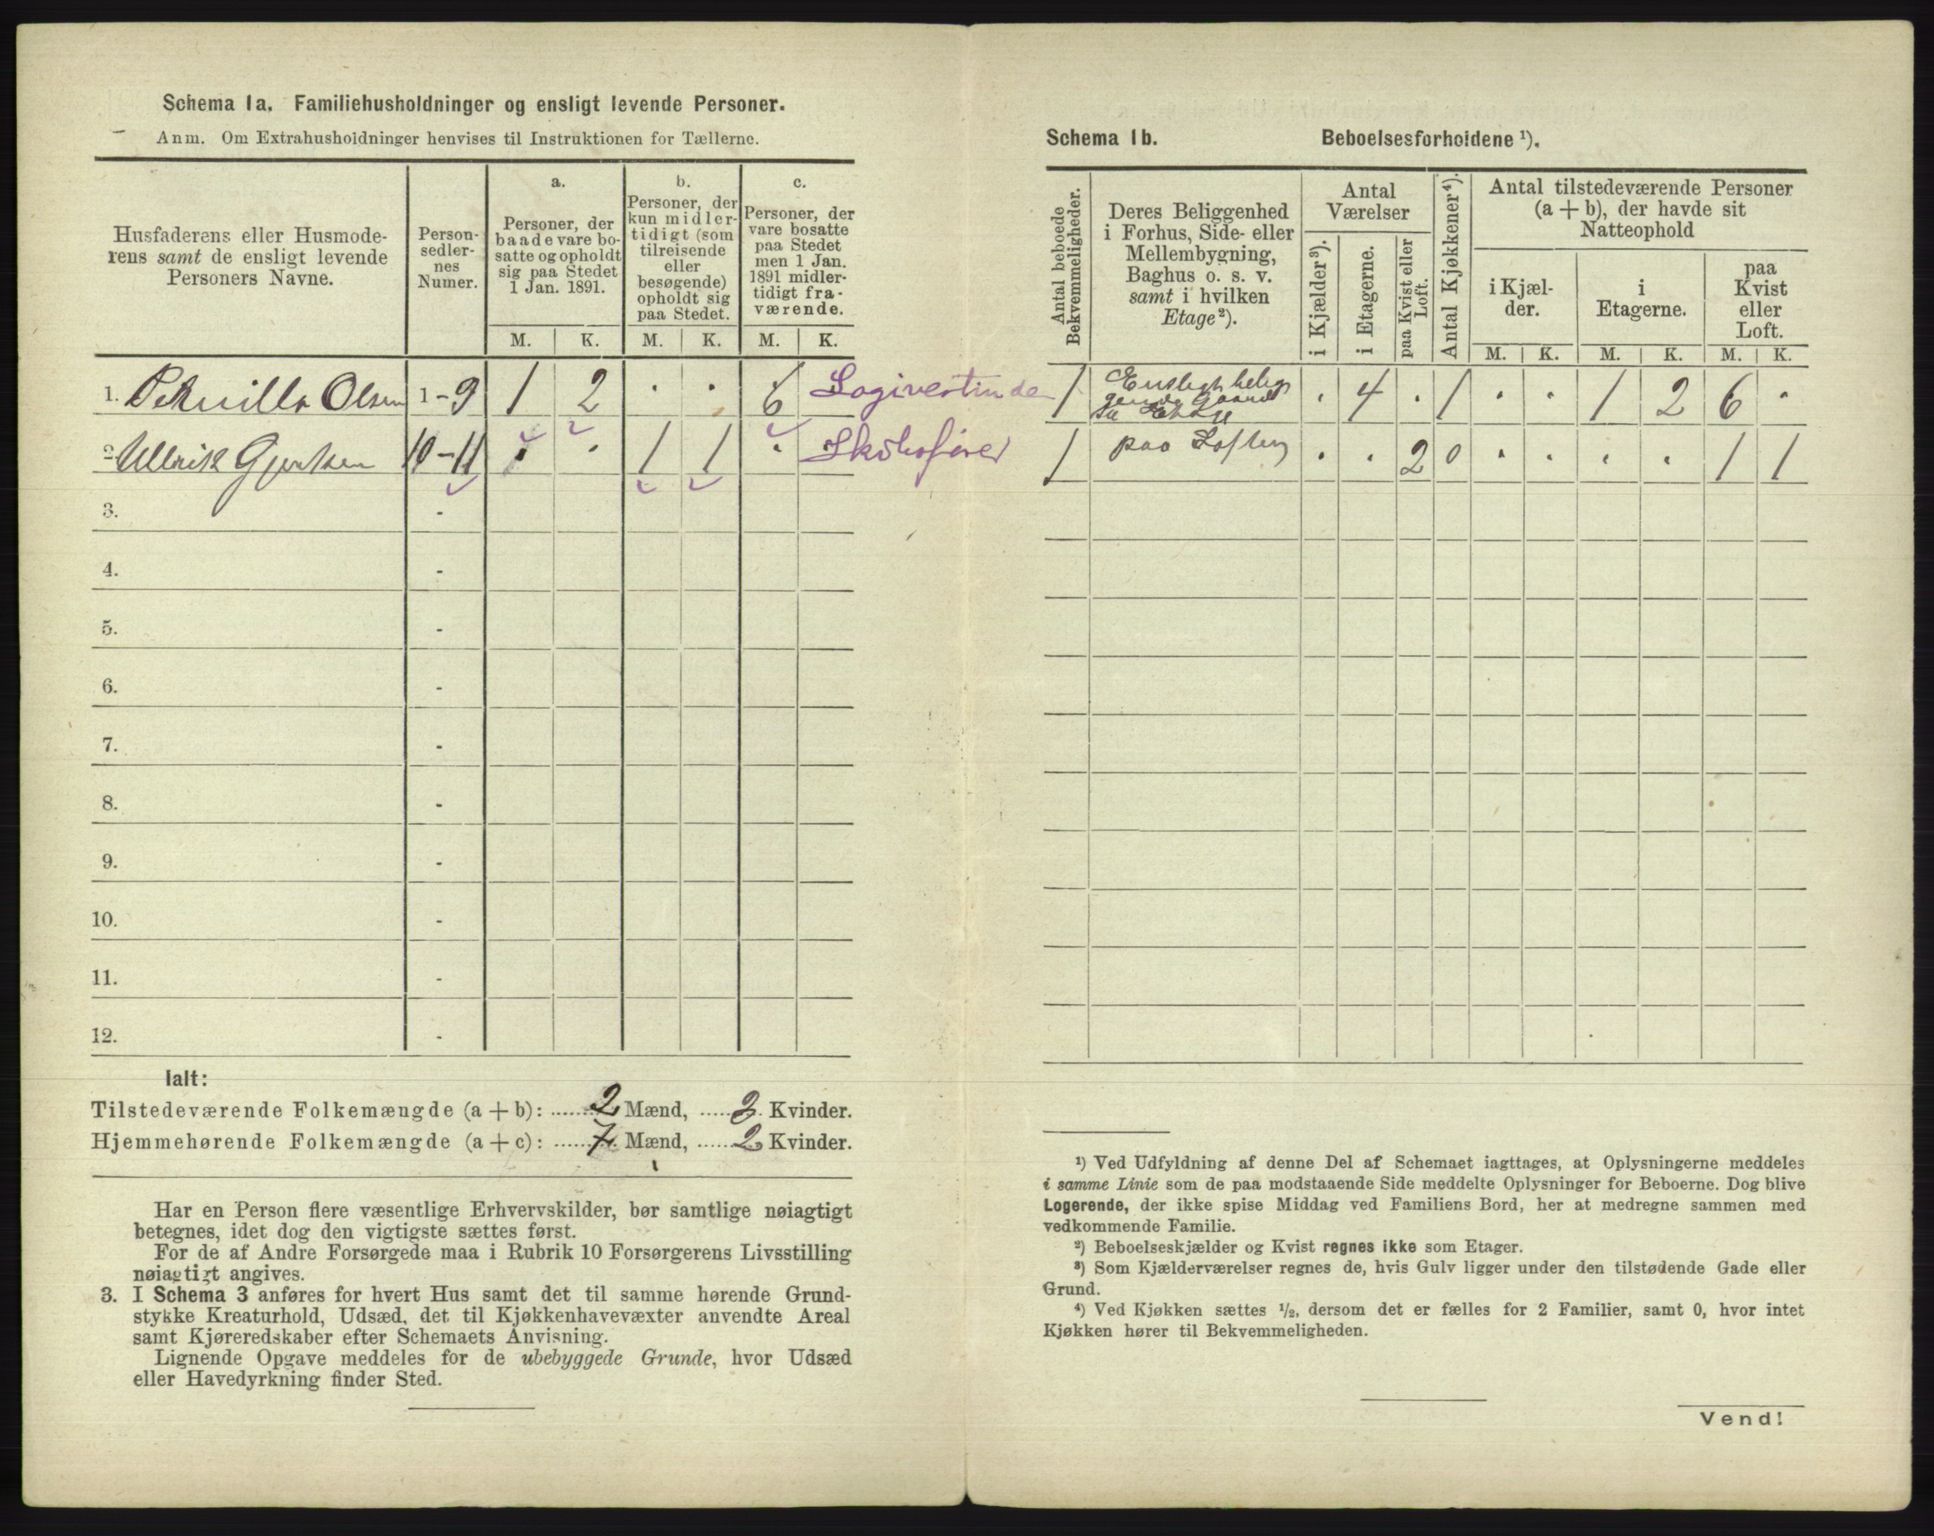 Schema 1a. Familiehusholdninger og ensligt levende Personer.
Anm. Om Extrahusholdninger henvises til Instruktionen for Tællerne.
Husfaderens eller Husmoderens samt de ensligt levende Personers Navne.
Personsedlernes Numer.
a.
Personer, der baade vare bosatte og opholdt sig paa Stedet 1 Jan. 1891.
b.
Personer, der kun midlertidigt (som tilreisende eller besøgende) opholdt sig paa Stedet.
c.
Personer, der vare bosatte paa Stedet men 1 Jan. 1891 midlertidigt fraværende.
M. K. M. K. M. K.
1. Petnilla Olsen 1-9 1 2 . . 6 Logivertinde
2 Ullrik Gjertsen 10-11 . . 1 1 . Skibsfører
3. -
4. -
5. -
6. -
7. -
8. -
9. -
10. -
11. -
12. -
Ialt:
Tilstedeværende Folkemængde (a + b): 2 Mænd, 3 Kvinder.
Hjemmehørende Folkemængde (a + c): 7 Mænd, 2 Kvinder.
Har en Person flere væsentlige Erhvervskilder, bør samtlige nøiagtigt
betegnes, idet dog den vigtigste sættes først.
For de af Andre Forsørgede maa i Rubrik 10 Forsørgerens Livsstilling
nøiagtigt angives.
3. I Schema 3 anføres for hvert Hus samt det til samme hørende Grund-
stykke Kreaturhold, Udsæd, det til Kjøkkenhavevæxter anvendte Areal
samt Kjøreredskaber efter Schemaets Anvisning.
Lignende Opgave meddeles for de ubebyggede Grunde, hvor Udsæd
eller Havedyrkning finder Sted.
Schema 1b. Beboelsesforholdene ¹).
Antal beboede Bekvemmeligheder.
Deres Beliggenhed i Forhus, Side- eller Mellembygning, Baghus o. s. v. samt i hvilken Etage²).
Antal Værelser
i Kjælder³).
i Etagerne.
paa Kvist eller Loft.
Antal Kjøkkener⁴).
Antal tilstedeværende Personer (a + b), der havde sit Natteophold
i Kjælder.
i Etagerne.
paa Kvist eller Loft.
M. K. M. K. M. K.
1 Ensligt belig
gende Gaard
1ste Etage . 4 . 1 . . 1 2 6 .
1 paa Loftet . . 2 0 . . . . 1 1
¹) Ved Udfyldning af denne Del af Schemaet iagttages, at Oplysningerne meddeles
i samme Linie som de paa modstaaende Side meddelte Oplysninger for Beboerne. Dog blive
Logerende, der ikke spise Middag ved Familiens Bord, her at medregne sammen med
vedkommende Familie.
²) Beboelseskjælder og Kvist regnes ikke som Etager.
³) Som Kjælderværelser regnes de, hvis Gulv ligger under den tilstødende Gade eller
Grund.
⁴) Ved Kjøkken sættes ½, dersom det er fælles for 2 Familier, samt 0, hvor intet
Kjøkken hører til Bekvemmeligheden.
Vend!